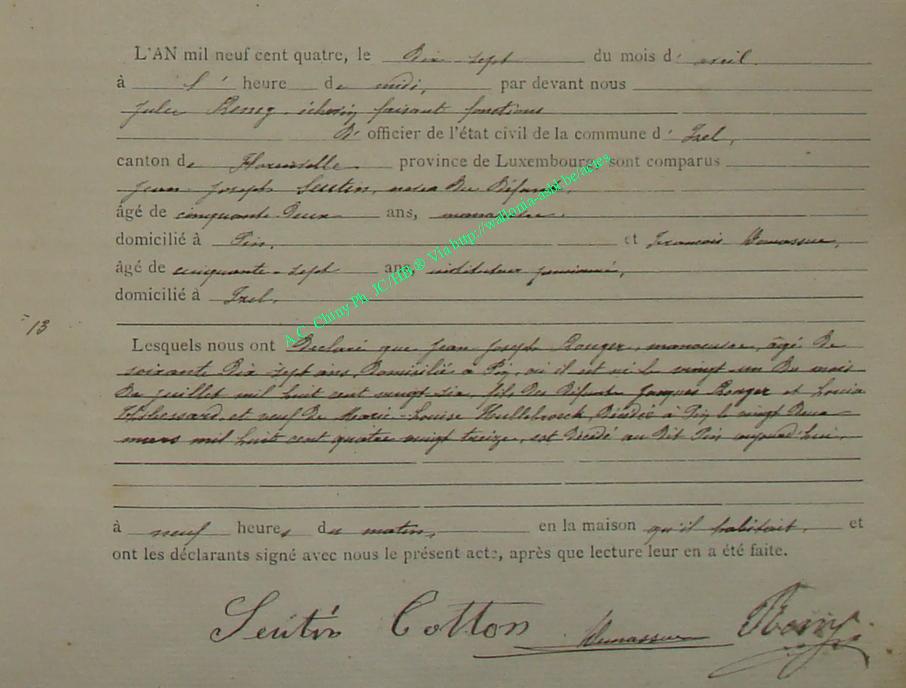 L'AN mil neuf cent quatre, le Dix sept du mois d' avril
à l' heure de midi, par devant nous
Jules Remy, échevin faisant fonctions
D' officier de l'état civil de la commune d' Izel,
canton de Florenville province de Luxembourg, sont comparus
Jean Joseph Seutin, du Défunt,
âgé de cinquante Deux ans, manoeuvre,
domicilié à Pin, et François
âgé de cinquante-sept ans, instituteur pensionné,
domicilié à Izel,
13
Lesquels nous ont Déclaré que Jean Joseph Rouger, manoeuvre, âgé de
soixante Dix sept ans, Domicilié à Pin, où il est né le vingt un Du mois
De juillet mil huit cent vingt six, fils Des Défunts Jacques Rouger et
et veuf De Marie-Louise Décédée à Pin le vingt Deux
mars mil huit cent quatre vingt treize, est Décédé au Dit Pin aujourd'hui,
à neuf heures du matin, en la maison qu'il habitait, et
ont les déclarants signé avec nous le présent acte, après que lecture leur en a été faite.
Seutin Cotton Remy
A.C. Chiny Ph. JC/HB ® Via http://wallonia-asbl.be/actes